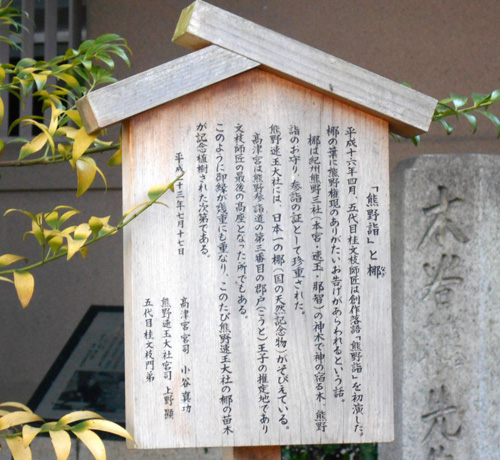 「熊野詣」と梛
なぎ
平成十六年四月、五代目桂文枝師匠は創作落語「熊野詣」を初演した。
梛の葉に熊野権現のありがたいお告げがあらわれるという話。
梛は紀州熊野三社(本宮・速玉・那智)の神木で神の宿る木、熊野
詣のお守り、参詣の証として珍重された。
熊野速玉大社には、日本一の梛(国の天然記念物)がそびえている。
高津宮は熊野参詣道の第三番目の郡戸(こうと)王子の推定地であり
文枝師匠の最後の高座となった所でもある。
このように御縁が幾重にも重なり、このたび熊野速玉大社の梛の苗木
が記念植樹された次第である。
平成十三年七月十七日
高津宮宮司 小谷真功
熊野速玉大社宮司 上野顯
五代目桂文枝門弟